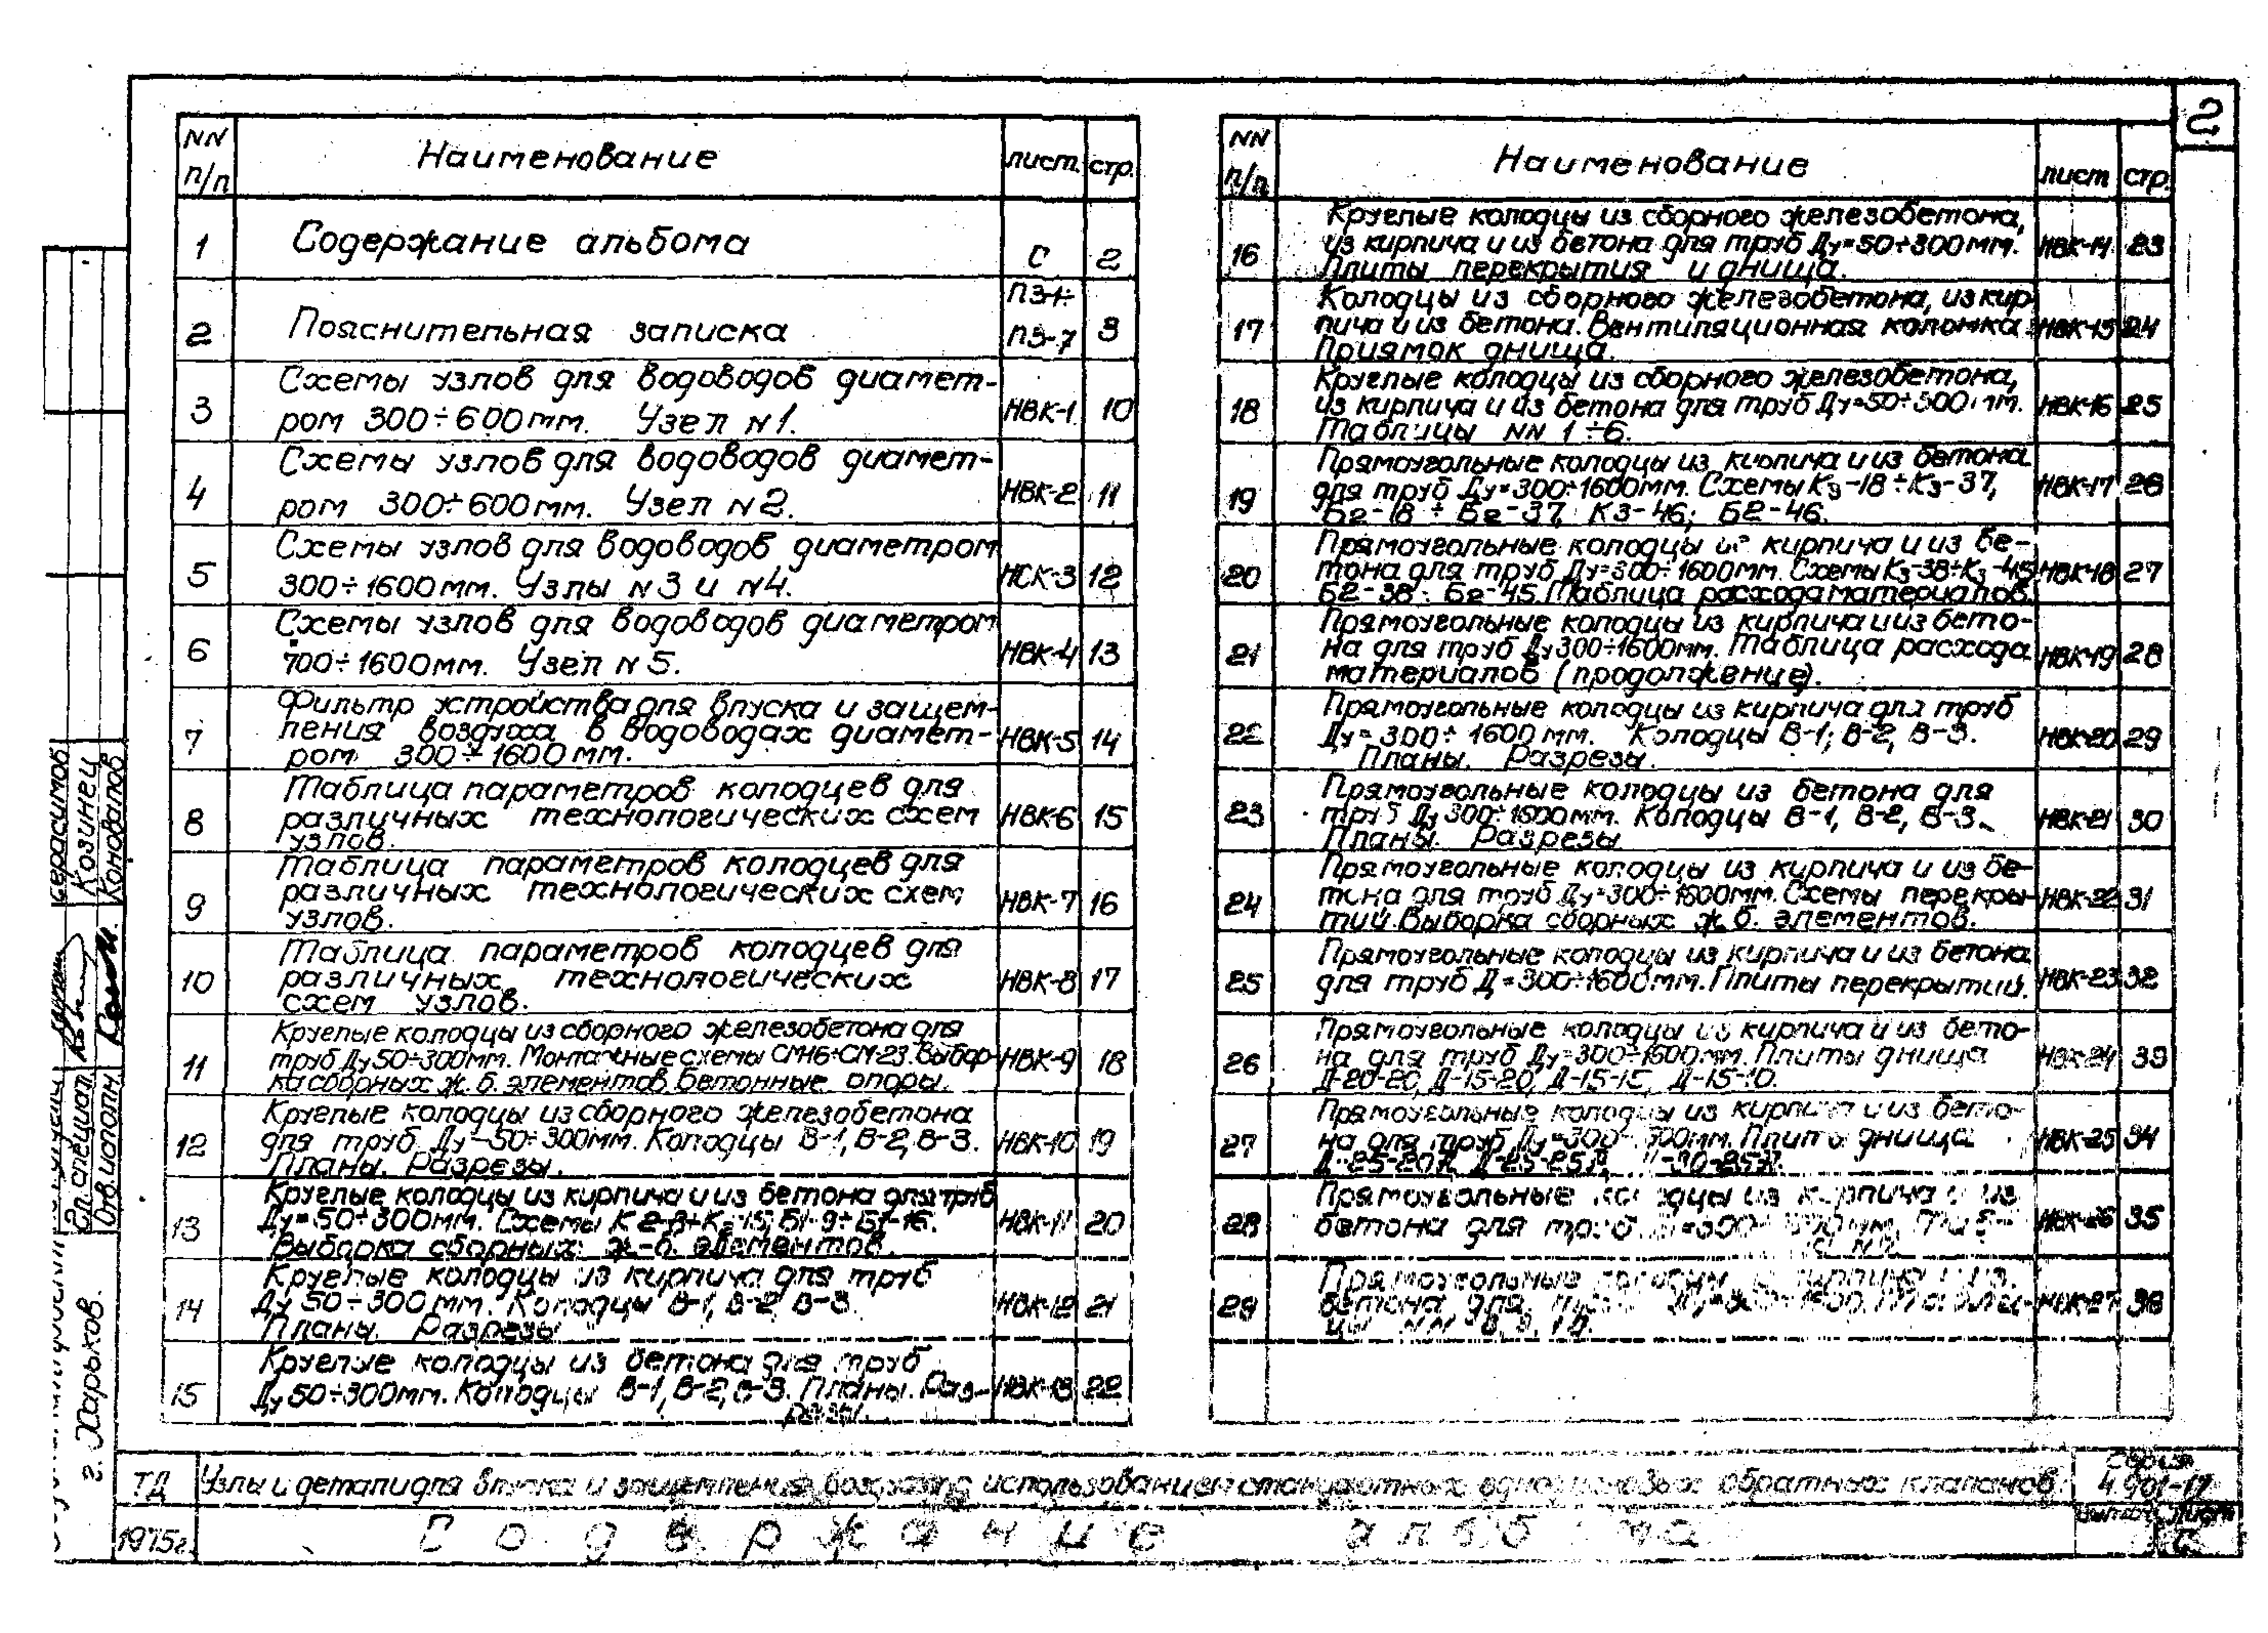 2
NN п/п Наименование лист. стр.
1 Содержание альбома С 2
2 Пояснительная записка ПЗ-1÷ ПЗ-7 3
3 Схемы узлов для водоводов диамет-
ром 300÷600мм. Узел N1. НВК-1 10
4 Схемы узлов для водоводов диамет-
ром 300÷600мм. Узел N2. НВК-2 11
5 Схемы узлов для водоводов диаметром
300÷1600мм. Узлы N3 и N4. НСК-3 12
6 Схемы узлов для водоводов диаметром
700÷1600мм. Узел N5. НВК-4 13
7 Фильтр устройства для впуска и защем-
ления воздуха в водоводах диамет-
ром 300÷1600мм. НВК-5 14
8 Таблица параметров колодцев для
различных технологических схем
узлов. НВК-6 15
9 Таблица параметров колодцев для
различных технологических схем
узлов. НВК-7 16
10 Таблица параметров колодцев для
различных технологических
схем узлов. НВК-8 17
11 Круглые колодцы из сборного железобетона для
труб Ду50÷300мм. Монтажные схемы СМ-16÷СМ-23. Выбор-
ка сборных ж.б. элементов. Бетонные опоры. НВК-9 18
12 Круглые колодцы из сборного железобетона
для труб Ду-50÷300мм. Колодцы В-1, В-2, В-3.
Планы. Разрезы. НВК-10 19
13 Круглые колодцы из кирпича и из бетона для труб
Ду=50÷300мм. Схемы
Выборка сборных ж-б. элементов. НВК-11 20
14 Круглые колодцы из кирпича для труб
Ду 50÷300мм. Колодцы В-1, В-2, В-3.
Планы. Разрезы НВК-12 21
15 Круглые колодцы из бетона для труб
Ду 50÷300мм. Колодцы В-1, В-2, В-3. Планы. Раз-
резы. НВК-13 22
NN п/п Наименование лист стр.
16 Круглые колодцы из сборного железобетона,
из кирпича и из бетона для труб Ду=50÷300мм.
Плиты перекрытия и днища. НВК-14 23
17 Колодцы из сборного железобетона, из кир-
пича и из бетона. Вентиляционная колонка.
Приямок днища. НВК-15 24
18 Круглые колодцы из сборного железобетона,
из кирпича и из бетона для труб Ду=50÷300мм.
Таблицы NN 1÷6. НВК-16 25
19 Прямоугольные колодцы из кирпича и из бетона
для труб Ду=300÷1600мм. Схемы К3-18÷К3-37,
Б2-18÷Б2-37, К3-46; Б2-46. НВК-17 26
20 Прямоугольные колодцы из кирпича и из бе-
тона для труб Ду=300÷1600мм. Схемы К3-38÷К3-45
Б2-38÷Б2-45. Таблица расхода материалов. НВК-18 27
21 Прямоугольные колодцы из кирпича и из бето-
на для труб Ду300÷1600мм. Таблица расхода
материалов (продолжение). НВК-19 28
22 Прямоугольные колодцы из кирпича для труб
Ду=300÷1600мм. Колодцы В-1; В-2, В-3.
Планы. Разрезы. НВК-20 29
23 Прямоугольные колодцы из бетона для
труб Ду 300÷1600мм. Колодцы В-1, В-2, В-3.
Планы. Разрезы НВК-21 30
24 Прямоугольные колодцы из кирпича и из бе-
тона для труб Ду=300÷1600мм. Схемы перекры-
тий. Выборка сборных ж.б. элементов. НВК-22 31
25 Прямоугольные колодцы из кирпича и из бетона
для труб Д=300÷1600мм. Плиты перекрытий. НВК-23 32
26 Прямоугольные колодцы из кирпича и из бето-
на для труб Ду=300÷1600мм. Плиты днища
Д-20-20, Д-15-20, Д-15-15, Д-15-10. НВК-24 33
27 Прямоугольные колодцы из кирпича и из бето-
на для труб Ду=300 Плиты днища
НВК-25 34
28 Прямоугольные колодцы из кирпича и из
бетона для труб НВК-26 35
29 Прямоугольные колодцы
бетона для НВК-27 36
Герасимов
Козинец
Коновалов
Гл. специал.
Отв. исполн.
г. Харьков.
ТД Узлы и детали для впуска и защемления воздуха с использованием стандартных обратных клапанов Серия 4.901-17
1975г. Содержание альбома Лист С